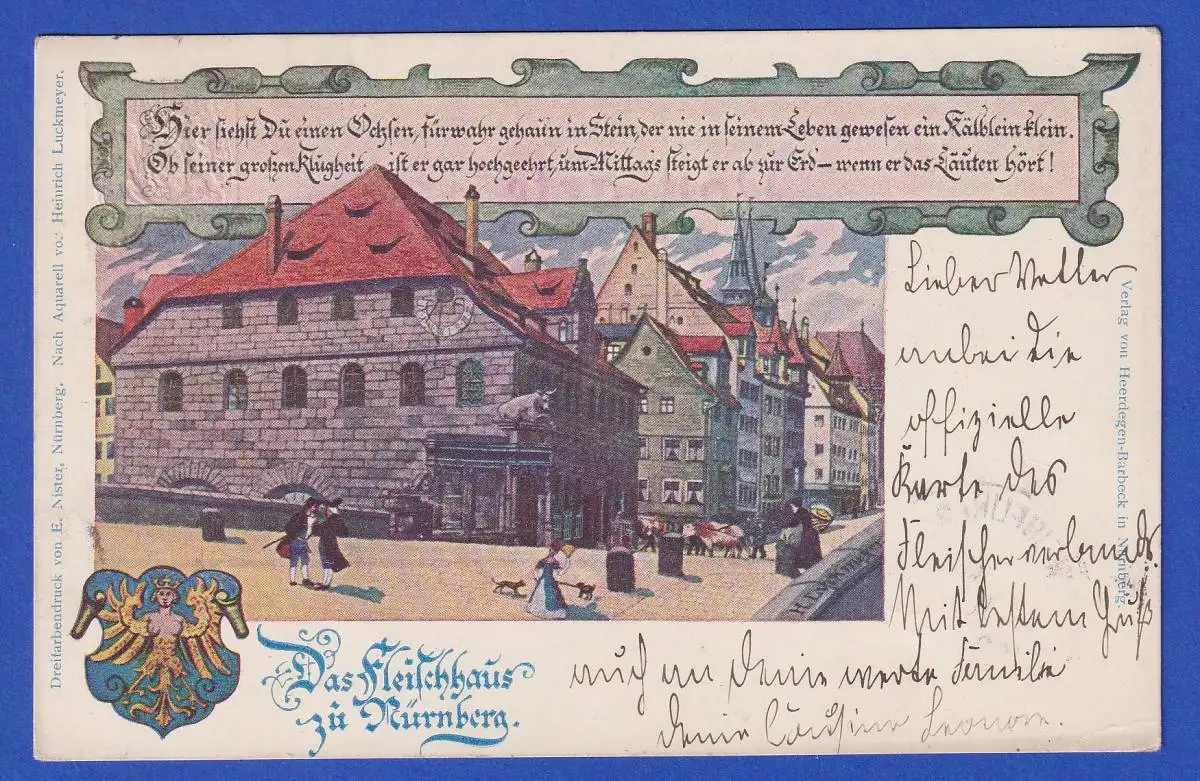 Hier siehst Du einen Ochsen, fürwahr gehau'n in Stein, der nie in seinem Leben gewesen ein Kälblein klein.
Ob seiner großen Klugheit – ist er gar hochgeehrt, um Mittags steigt er ab zur Erd – wenn er das Läuten hört!
Dreifarbendruck von E. Nister, Nürnberg. Nach Aquarell von Heinrich Luckmeyer.
Lieber Vetter
anbei die
offizielle
Karte des
Fleischerverbands.
Mit bestem Gruß
auch an deine werte Familie
deine Cousine Leonore.
Verlag von Heerdegen-Barbeck in Nürnberg.
H. Luckmeyer
Das Fleischhaus
zu Nürnberg.